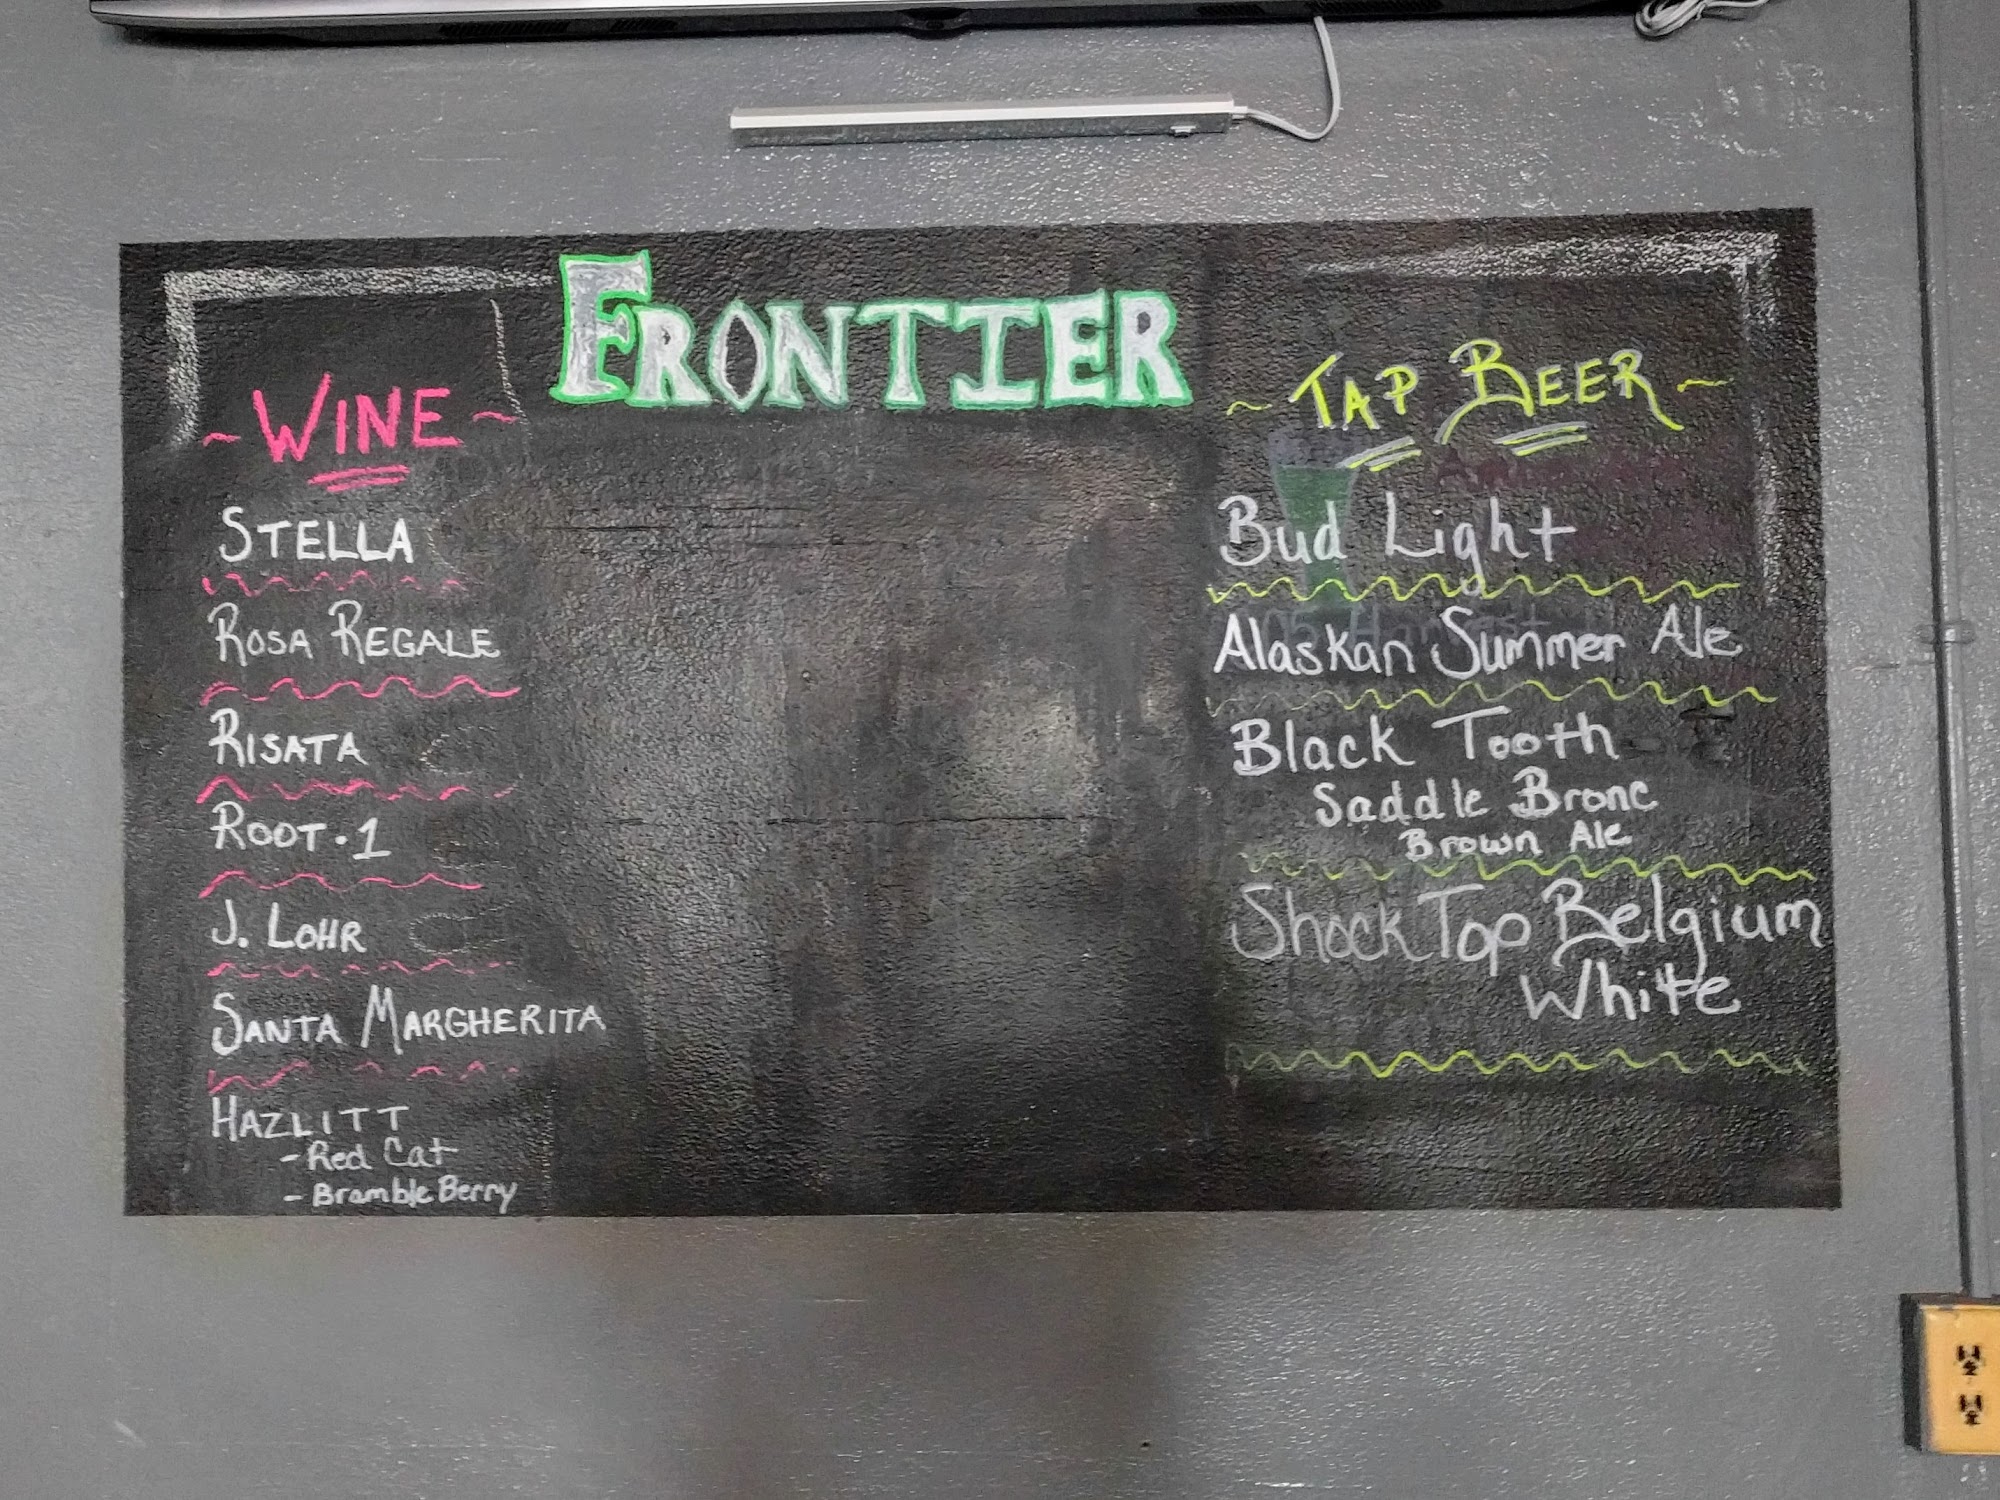 FRONTIER
~ WINE ~
STELLA
ROSA REGALE
RISATA
ROOT·1
J. LOHR
SANTA MARGHERITA
HAZLITT
- Red Cat
- Bramble Berry
~ TAP BEER ~
Bud Light
Alaskan Summer Ale
Black Tooth
Saddle Bronc
Brown Ale
Shock Top Belgium
White